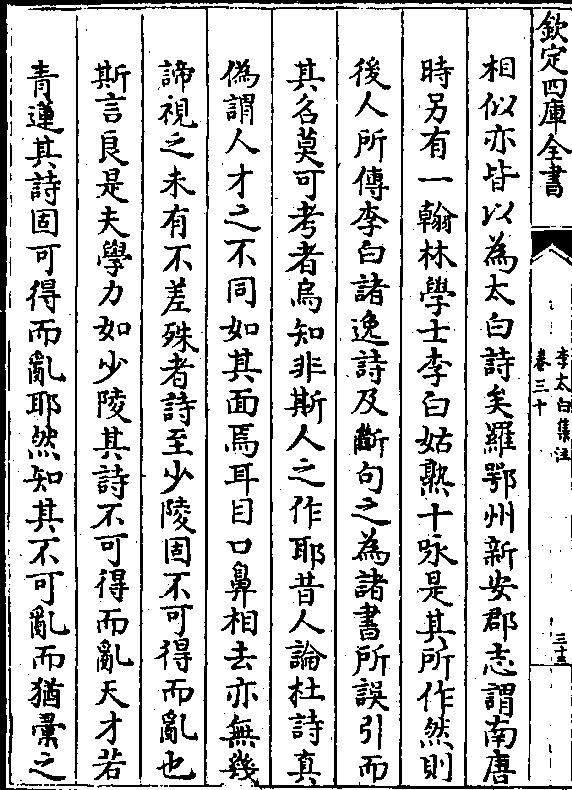 欽定四庫全書
李太白集注
卷三十
三十五
相似亦皆以為太白詩矣羅鄂州新安郡志謂南唐
時另有一翰林學士李白姑熟十咏是其所作然則
後人所傳李白諸逸詩及斷句之為諸書所誤引而
其名莫可考者烏知非斯人之作耶昔人論杜詩真
偽謂人才之不同如其面焉耳目口鼻相去亦無幾
諦視之未有不差殊者詩至少陵固不可得而亂也
斯言良是夫學力如少陵其詩不可得而亂天才若
青蓮其詩固可得而亂耶然知其不可亂而猶彚之